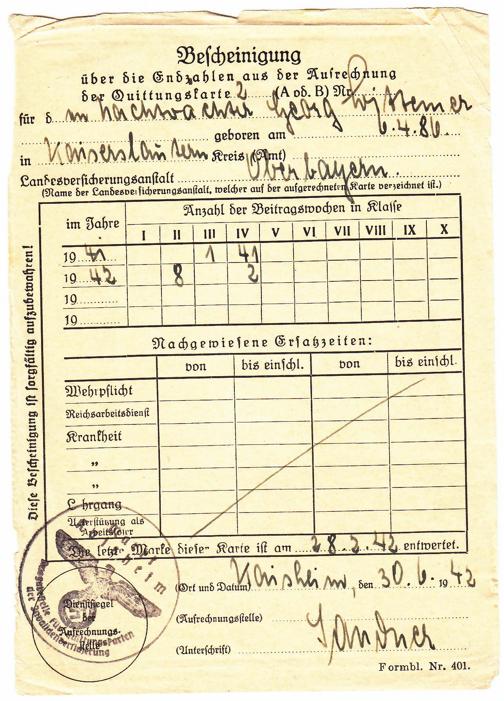 Bescheinigung
über die Endzahlen aus der Aufrechnung
der Quittungskarte 2 (A od. B) Nr.
für d m Nachtwächter Georg Wittemer
geboren am 6.4.86
in Kaiserslautern Kreis (Amt)
Landesversicherungsanstalt Oberbayern.
(Name der Landesversicherungsanstalt, welcher auf der aufgerechneten Karte verzeichnet ist.)
Diese Bescheinigung ist sorgfältig aufzubewahren!
im Jahre Anzahl der Beitragswochen in Klasse
I II III IV V VI VII VIII IX X
1941 1 41
1942 8 2
19
19
Nachgewiesene Ersatzzeiten:
von bis einschl. von bis einschl.
Wehrpflicht
Reichsarbeitsdienst
Krankheit
"
"
Lehrgang
Unterstützung als Arbeitsloser
Die letzte Marke dieser Karte ist am 28.2.42 entwertet.
(Ort und Datum) Kaisheim, den 30.6.1942
Dienstsiegel
der
Aufrechnungs-
stelle
(Aufrechnungsstelle)
(Unterschrift) Sandner
Formbl. Nr. 401.